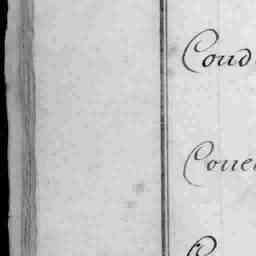 Coud
Coue